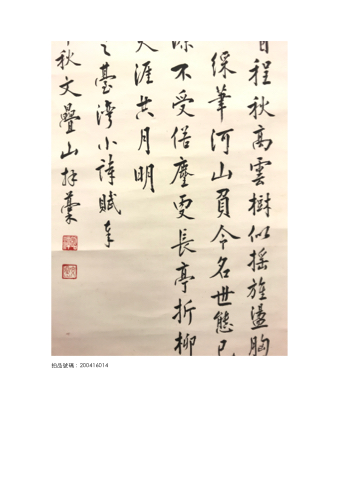 程秋高雲樹似搖旌盪胸
綵筆河山負今名世態已
不受俗塵更長亭折柳
天涯共月明
之臺灣小詩賦奉
秋文疊山拜藁
拍品號碼：200416014